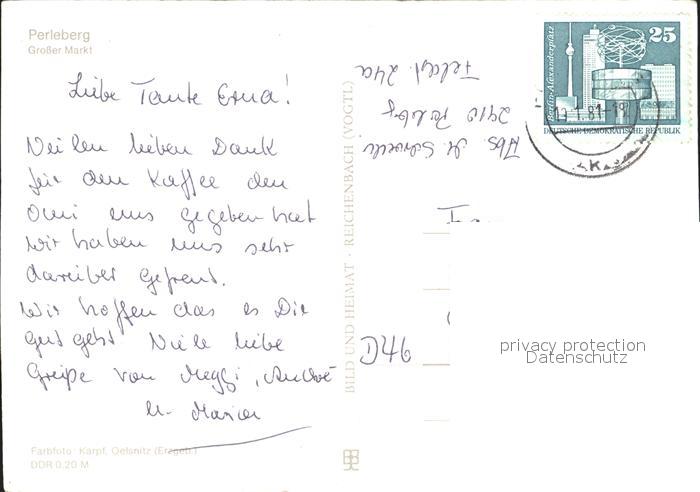 Perleberg
Großer Markt
Liebe Tante Erna!
Vielen lieben Dank
für den Kaffee den
Omi uns gegeben hat
wir haben uns sehr
darüber gefreut.
Wir hoffen das es Dir
gut geht Viele liebe
Grüße von Meggi, André
u. Marion
Farbfoto: Karpf, Oelsnitz (Erzgeb.)
DDR 0,20 M
BILD UND HEIMAT · REICHENBACH (VOGTL)
Abs M.
2910 Perlebg
Feldst. 24a
25
Berlin-Alexanderplatz
DEUTSCHE DEMOKRATISCHE REPUBLIK
1.81-18
D46
privacy protection
Datenschutz